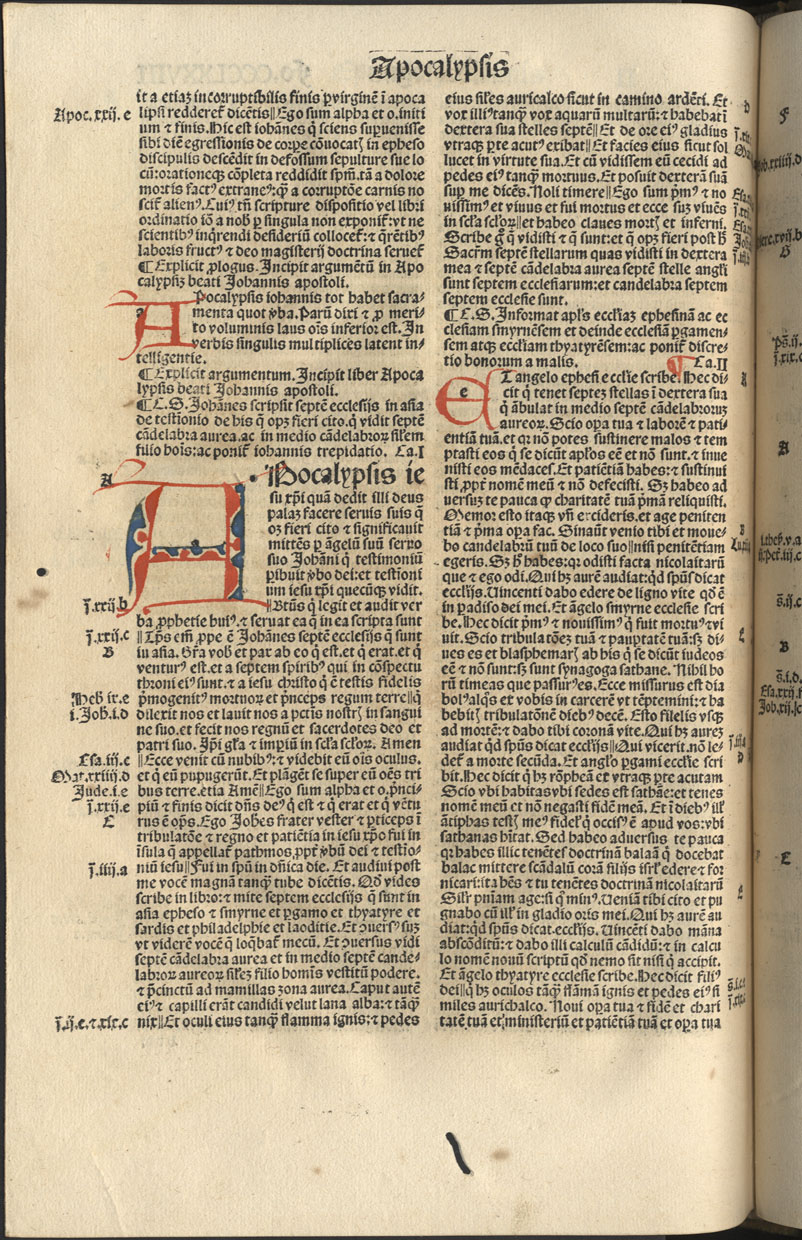 Apocalypsis
it a etiaʒ incorruptibilis finis ꝑ virginē ī apoca
lipsi redderet᷑ dicētis||Ego sum alpha et o.initi
um ⁊ finis.Hic est iohānes qͥ sciens supuenisse
sibi diē egressionis de corpe cōuocatꝭ in epheso
discipulis descēdit in defossum sepulture sue lo
cū:orationeqꝫ cōpleta reddidit spm̄.tā a dolore
mortis factꝰ extraneꝰ:qͣ a corruptōe carnis no
scit᷑ alienꝰ.Cuiꝰ tn̄ scripture dispositio vel libri
ordinatio iō a nob ꝑ singula non exponit᷑:vt ne
scientibꝰ inqͥrendi desideriū collocet᷑:⁊ qͥrētibꝰ
laboris fructꝰ ⁊ deo magisterij doctrina seruet᷑
¶Explicit ꝓlogus.Incipit argumētū in Apo
calypsiʒ beati Johannis apostoli.
Apocalypsis iohannis tot habet sacra⸗
menta quot v̓ba.Parū dixi ⁊ ꝓ meri⸗
to voluminis laus oīs inferior est.In
verbis singulis multiplices latent in⸗
telligentie.
¶Explicit argumentum.Incipit liber Apoca
lypsis beati Johannis apostoli.
¶C.S.Johānes scripsit septē ecclesijs in asia
de testīonio de his q̄ opʒ fieri cito.qͥ vidit septē
cādelabra aurea.ac in medio cādelabroꝝ silem
filio hoīs:ac ponit᷑ iohannis trepidatio. Ca.I
Apocalypsis ie
su xp̄i quā dedit illi deus
palaʒ facere seruis suis q̄
oʒ fieri cito ⁊ significauit
mittēs ꝑ āgelū suū seruo
suo Johāni qͥ testimoniū
ꝑibuit v̓bo dei:et testīoni
um iesu xp̄i quecūqꝫ vidit.
Btūs qͥ legit et audit ver
ba ꝓphetie huiꝰ.⁊ seruat ea q̄ in ea scripta sunt
||Tp̄s em̄ ꝓpe ē Johānes septē ecclesijs q̄ sunt
in asia. Gr̄a vob et pax ab eo qͥ est.et qͥ erat.et qͥ
venturꝰ est.et a septem spiribꝰ qui in cōspectu
throni eiꝰ sunt.⁊ a iesu christo qͥ ē testis fidelis
pͥmogenitꝰ mortuoꝝ et pͥnceps regum terre||qͥ
dilexit nos et lauit nos a pctīs nostrꝭ in sangui
ne suo.et fecit nos regnū et sacerdotes deo et
patri suo. Jp̄i gl̄a ⁊ impiū in scl̄a scl̄oꝝ. Amen
||Ecce venit cū nubibꝰ:⁊ videbit eū oīs oculus.
et qͥ eū pupugerūt.Et plāgēt se super eū oēs tri
bus terre.etia Amē||Ego sum alpha et o.pͥnci⸗
piū ⁊ finis dicit dn̄s deꝰ qͥ est ⁊ qͥ erat et qͥ vētu
rꝰ ē oꝑs.Ego Johēs frater vester ⁊ pͥticeps ī
tribulatōe ⁊ regno et patiētia in iesu xp̄o fui in
īsula q̄ appellat᷑ pathmos,ꝓpt᷑ v̓bū dei ⁊ testīo⸗
niū iesu||Fui in spū in dn̄ica die. Et audiui post
me vocē magnā tanqͣ tube dicētis. Qd̓ vides
scribe in libro:⁊ mite septem ecclesijs q̄ sunt in
asia epheso ⁊ smyrne et ꝑgamo et thyatyre et
sardis et philadelphie et laoditie. Et ↄuersꝰ suʒ
vt viderē vocē q̄ loqͣbat᷑ mecū. Et ↄuersus vidi
septē cādelabra aurea et in medio septē cande⸗
labroꝝ aureoꝝ sileʒ filio homīs vestitū podere.
⁊ pͥcinctū ad mamillas zona aurea.Caput autē
eiꝰ ⁊ capilli erāt candidi velut lana alba:⁊ tāqͣ
nix||Et oculi eius tanqͣ flamma ignis:⁊ pedes
Apoc.xxij.e
A
j̄.xxij.b
j̄.xxij.c
B
Heb.ix.e
i.Joh.i.d
Esa.iij.e
Mat.xxiiij.d
Jude.i.e
j̄.xxij.e
C
j̄.iiij.a
j̄.ij.e.⁊.xix.c
eius siles auricalco sicut in camino ardēti. Et
vox illiꝰ tanqͣ vox aquarū multarū:⁊ habebat ī
dextera sua stellas septē||Et de ore eiꝰ gladius
vtraqꝫ ꝑte acutꝰ exibat||Et facies eius sicut sol
lucet in virtute sua.Et cū vidissem eū cecidi ad
pedes eiꝰ tanqͣ mortuus.Et posuit dexterā suā
suꝑ me dicēs.Noli timere||Ego sum pͥmꝰ ⁊ no
uissimꝰ et viuus et fui mortus et ecce suʒ viuēs
in scl̄a scl̄oꝝ||et habeo claues mortꝭ et inferni.
Scribe gͦ q̄ vidisti ⁊ q̄ sunt:et q̄ opʒ fieri post h̓
Sacrm̄ septē stellarum quas vidisti in dextera
mea ⁊ septē cādelabra aurea septē stelle angl̓i
sunt septem ecclesiarum:et candelabra septem
septem ecclesie sunt.
¶C.S.Informat apl̓s eccl̓iaʒ ephesinā ac ec
clesiam smyrnēsem et deinde ecclesiā ꝑgamen⸗
sem atqꝫ eccl̓iam thyatyrēsem:ac ponit᷑ discre⸗
tio bonorum a malis. ¶Ca.II
Et angelo ephesi eccl̓ie scribe.Hec di⸗
cit qͥ tenet septeʒ stellas ī dextera sua
qͥ ābulat in medio septē cādelabroruʒ
aureoꝝ.Scio oꝑa tua ⁊ laborē ⁊ pati⸗
entiā tuā.et qꝛ nō potes sustinere malos ⁊ tem
ptasti eos qͥ se dicūt apl̓os eē et nō sunt.⁊ inue
nisti eos mēdaces.Et patiētiā habes:⁊ sustinui
sti ꝓpt᷑ nomē meū ⁊ nō defecisti. Sʒ habeo ad
uersuʒ te pauca qͥ charitatē tuā pͥmā reliquisti.
Memor esto itaqꝫ vn̄ excideris.et age peniten
tiā ⁊ pͥma oꝑa fac. Sinaūt venio tibi et moue⸗
bo candelabrū tuū de loco suo||nisi penitētiam
egeris. Sʒ h̓ habes:qꝛ odisti facta nicolaitarū
que ⁊ ego odi.Qui hʒ aurē audiat:qd̓ spūs dicat
eccl̓ijs.Uincenti dabo edere de ligno vite qd̓ ē
in padiso dei mei. Et āgelo smyrne ecclesie scri
be.Hec dicit pͥmꝰ ⁊ nouissimꝰ qͥ fuit mortuꝰ ⁊ vi
uit. Scio tribulatōeʒ tuā ⁊ pauptatē tuā:sʒ di⸗
ues es et blasphemarꝭ ab his qͥ se dicūt iudeos
eē ⁊ nō sunt:sʒ sunt synagoga sathane. Nihil ho
rū timeas que passurꝰ es. Ecce missurus est dia
bolꝰ alqͥs et vobis in carcerē vt tēptemini:⁊ ha
bebitꝭ tribulatōnē diebꝰ decē. Esto fidelis vsqꝫ
ad mortē:⁊ dabo tibi coronā vite.Qui hʒ aureʒ
audiat qd̓ spūs dicat eccl̓ijs||Qui vicerit.nō le⸗
det᷑ a morte secūda. Et anglo ꝑgami eccl̓ie scri
bit.Hec dicit qͥ hʒ rōpheā et vtraqꝫ ꝑte acutam
Scio vbi habitas vbi sedes est sathāe:et tenes
nomē meū et nō negasti fidē meā. Et ī diebꝰ ill̓
ātiphas testꝭ meꝰ fidel᷑ qͥ occisꝰ ē apud vos:vbi
sathanas hītat. Sed habeo aduersus te pauca
qꝛ habes illic tenētes doctrinā balaā qͥ docebat
balac mittere scādalū corā filijs isrl̓ edere ⁊ for
nicari:ita hēs ⁊ tu tenētes doctrinā nicolaitarū
Silr̓ pniam age:si qͦ minꝰ.Ueniā tibi cito et pu
gnabo cū ill̓ in gladio oris mei.Qui hʒ aurē au
diat:qd̓ spūs dicat.eccl̓ijs. Uincēti dabo māna
abscōditū:⁊ dabo illi calculū cādidū:⁊ in calcu
lo nomē nouū scriptū qd̓ nemo sūt nisi qͥ accipit.
Et āgelo thyatyre ecclesie scribe.Hec dicit filiꝰ
dei||qͥ hʒ oculos tāqͣ flāmā ignis et pedes eiꝰ si
miles aurichalco. Noui oꝑa tua ⁊ fidē et chari
tatē tuā et ministeriū et patiētiā tuā et oꝑa tua